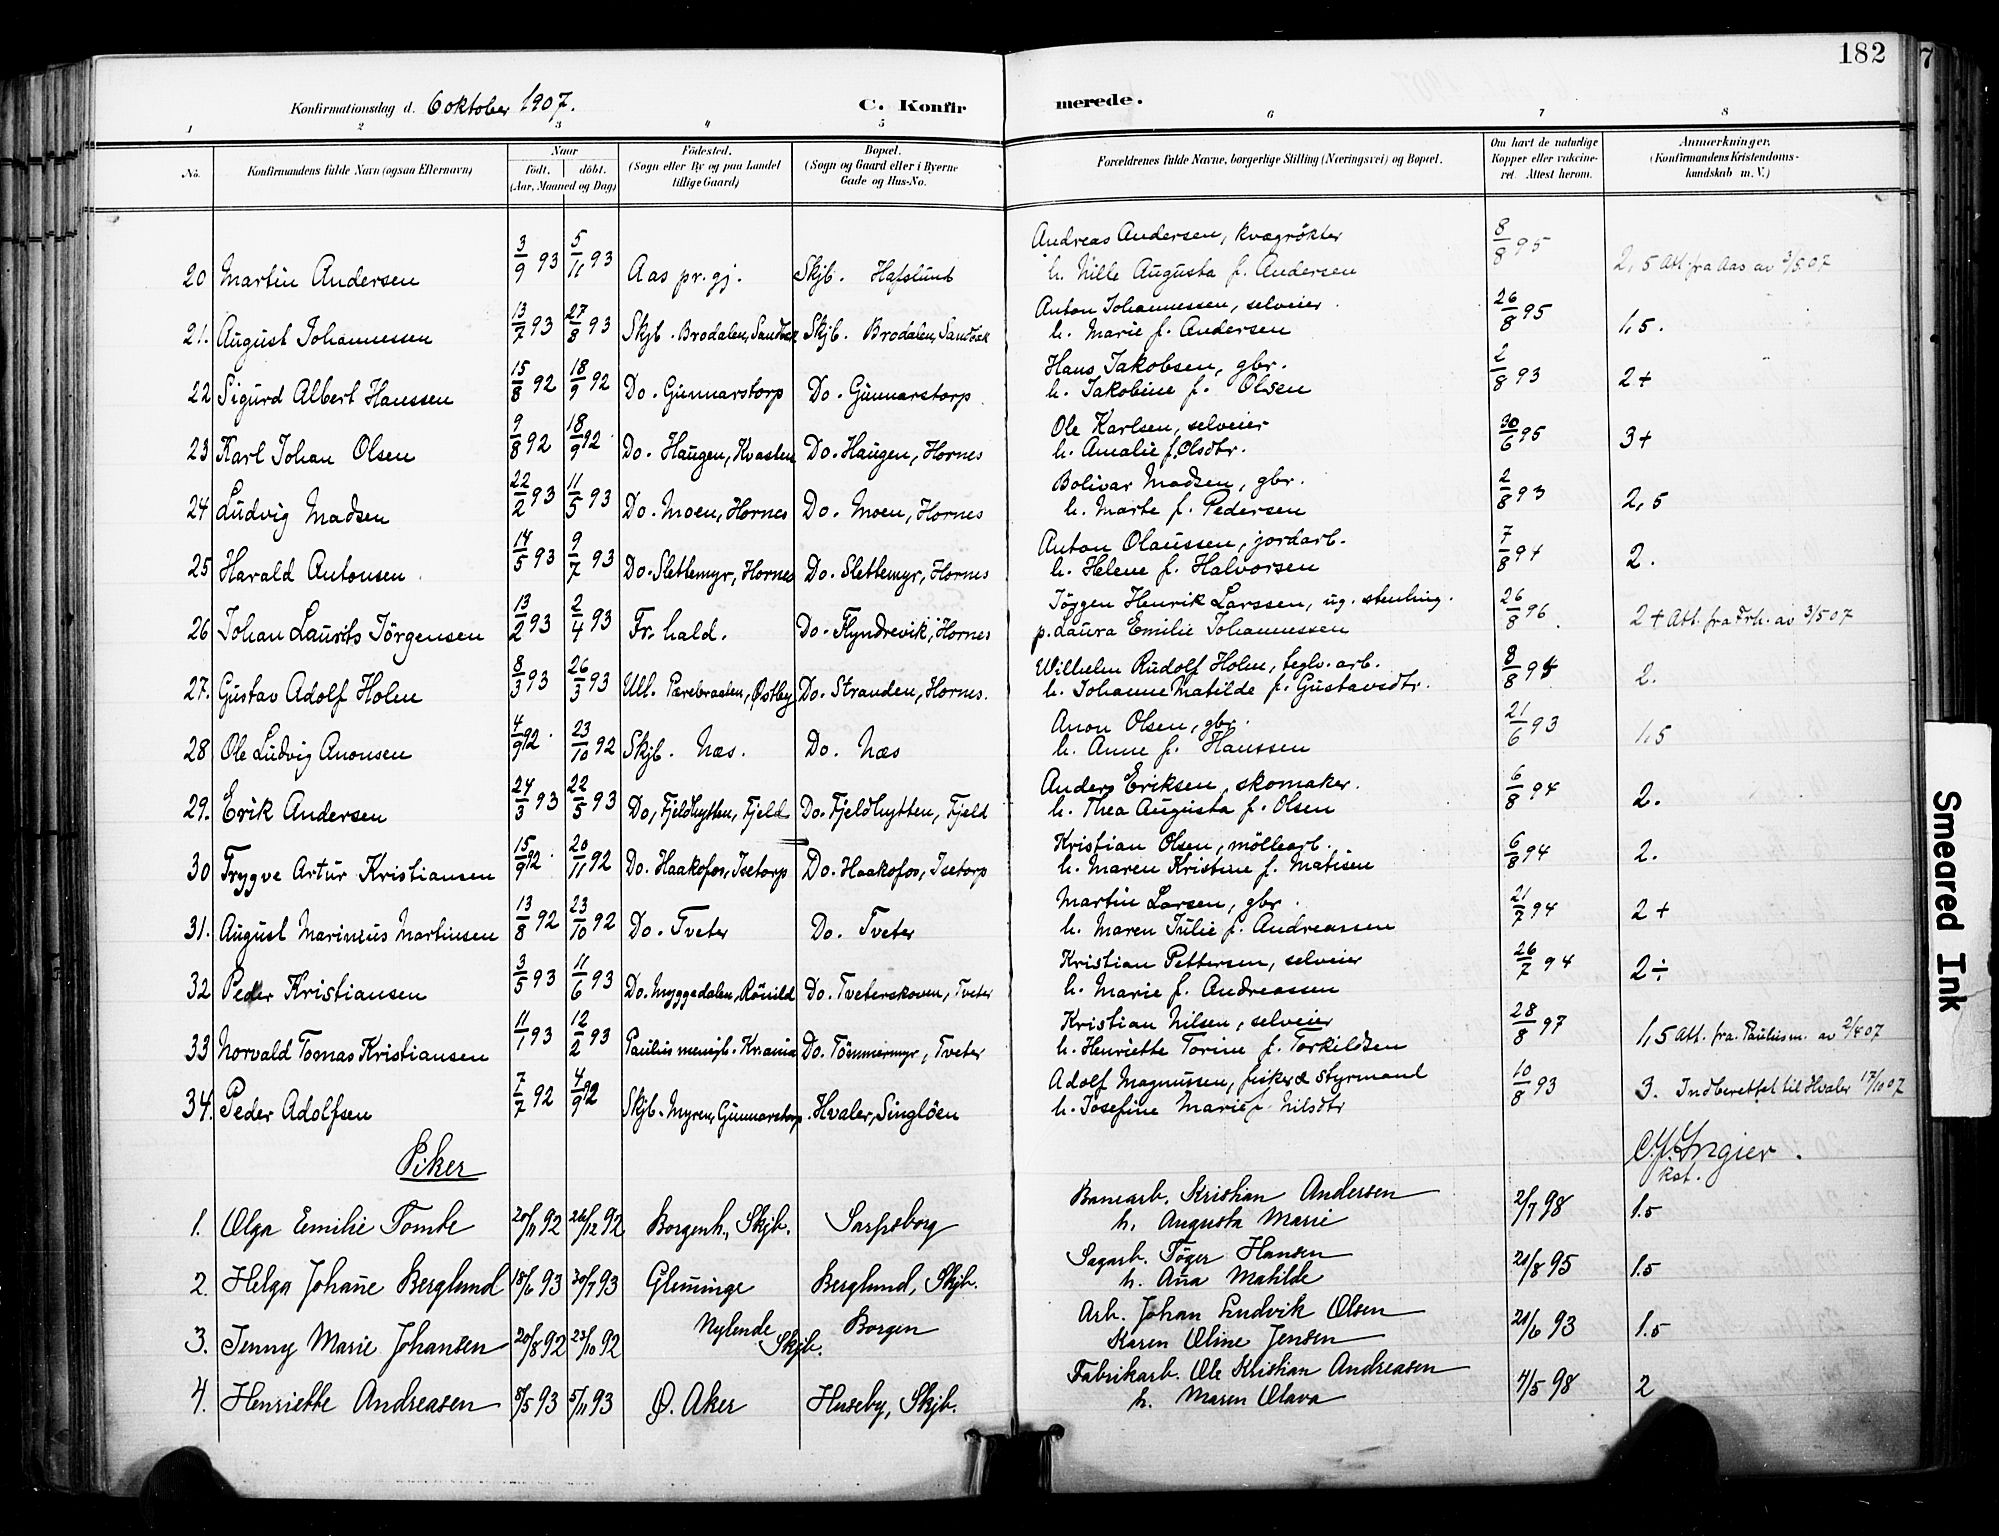 182
7
Konfirmationsdag d. 6 oktober 1907.
C. Konfirmerede.
1 2 3 4 5 6 7 8
No.
Konfirmandens fulde Navn (ogsaa Efternavn)
Naar
født. døbt.
(Aar, Maaned og Dag)
Fødested.
(Sogn eller By og paa Landet
tillige Gaard)
Bopæl.
(Sogn og Gaard eller i Byerne
Gade og Hus-No.
Forældrenes fulde Navne, borgerlige Stilling (Næringsvei) og Bopæl.
Om havt de naturlige
Kopper eller vakcine-
ret. Attest herom.
Anmerkninger.
(Konfirmandens Kristendoms-
kundskab m. V.)
Andreas Andersen, kvægrökter
20 Martin Andersen 3/9 93 5/11 93 Aas pr. gj. Skjb. Hafslund h. Nille Augusta f. Andersen 8/8 95 2,5 Att. fra Aas av 3/5 07
Anton Johannessen, selveier
21. August Johannessen 13/7 93 27/8 93 Skjb. Brodalen, Sandbæk Skjb. Brodalen, Sandbæk h. Marie f. Andersen 26/8 95 1,5.
Hans Jakobsen, gbr.
22 Sigurd Albert Hanssen 15/8 92 18/9 92 Do. Gunnarstorp Do. Gunnarstorp h. Jakobine f. Olsen 2/8 93 2+
Ole Karlsen, selveier
23 Karl Johan Olsen 9/8 92 18/9 92 Do. Haugen, Kvasten Do. Haugen, Hornes h. Amalie f. Olsdtr. 30/6 95 3+
Bolivar Madsen, gbr.
24 Ludvig Madsen 22/2 93 11/5 93 Do. Moen, Hornes Do. Moen, Hornes h. Marte f. Pedersen 2/8 93 2,5
Anton Olaussen, jordarb.
25 Harald Antonsen 14/5 93 9/7 93 Do. Slettemyr, Hornes Do. Slettemyr, Hornes h. Helene f. Halvorsen 7/8 94 2.
Jörgen Henrik Larssen, ug. stenhug.
26 Johan Laurits Jörgensen 13/2 93 2/4 93 Fr. hald. Do. Flyndrevik, Hornes p. Laura Emilie Johannessen 26/8 96 2+ Att. fra Frh. av 3/5 07
Wilhelm Rudolf Holm, teglv. arb.
27. Gustav Adolf Holm 8/3 93 26/3 93 Ull. Pærebraaten, Østby Do. Stranden, Hornes. h. Johanne Matilde f. Gustavsdtr. 8/8 94 2.
Anon Olsen, gbr.
28 Ole Ludvig Anonsen 4/9 92 23/10 92 Skjb. Næs. Do. Næs h. Anne f. Hanssen 21/6 93 1,5
Anders Eriksen, skomaker.
29. Erik Andersen 24/3 93 22/5 93 Do, Fjeldhytten, Fjeld Do. Fjeldhytten, Fjeld h. Thea Augusta f. Olsen 6/8 94 2.
Kristian Olsen, möllearb.
30 Trygve Artur Kristiansen 15/9 92 20/11 92 Do. Haakofos, Isetorp Do. Haakofos, Isetorp h. Maren Kristine f. Matisen 6/8 94 2.
Martin Larsen, gbr.
31. August Marinius Martinsen 13/8 92 23/10 92 Do. Tveter Do. Tveter h. Maren Julie f. Andreassen 21/7 94 2+
Kristian Pettersen, selveier
32 Peder Kristiansen 3/5 93 11/6 93 Do. Myggedalen, Rönild Do. Tveterskoven, Tveter h. Marie f. Andreassen 26/7 94 2÷
Kristian Nilsen, selveier
33 Norvald Tomas Kristiansen 11/1 93 12/2 93 Paulus menigh. Kr.ania Do. Tömmermyr, Tveter h. Henriette Torine f. Torkildsen 28/8 97 1,5 Att. fra. Paulusm. av 2/4 07
Adolf Magnussen, fisker & styrmand
34. Peder Adolfsen 7/7 92 4/9 92 Skjb. Myren, Gunnarstorp Hvaler, Singlöen h. Josefine Marie f. Nilsdtr 10/8 93 3. Indberettet til Hvaler 17/10 07
Piker
Ingier.
Banearb. Kristian Andersen
1. Olga Emilie Tombe 20/11 92 26/12 92 Borgenh., Skjb. Sarpsborg h. Augusta Marie 2/7 98 1.5
Sagarb. Töger Hansen
2. Helga Johañe Berglund 18/6 93 30/7 93 Glemminge Berglund, Skjb. h. Aña Matilde 21/8 95 1.5
Arb. Johan Ludvik Olsen
3. Jenny Marie Johansen 20/8 92 23/10 92 Nylende Skjb. Borgen Karen Oline Jensen 21/6 93 1.5
Fabrikarb. Ole Kristian Andreasen
4. Henriette Andreasen 8/5 93 5/11 93 Ø. Aker Huseby, Skjb. h. Maren Olava 4/5 98 2
Smeared Ink